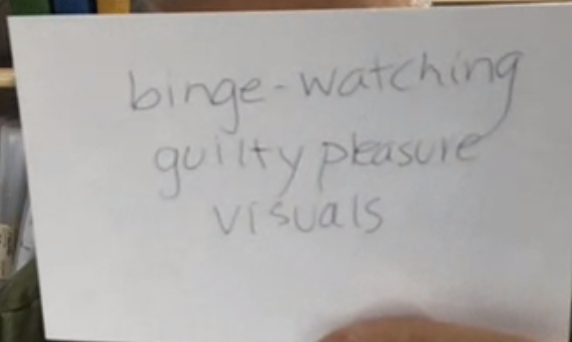 binge-watching
guilty pleasure
visuals